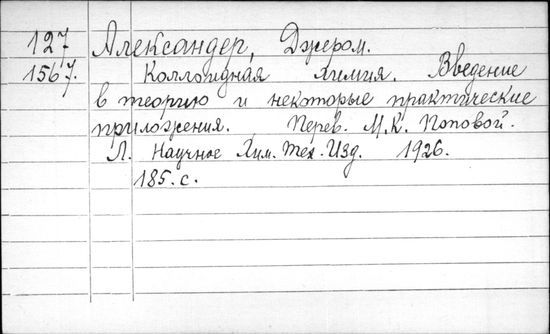 127 Александер, Джером.
1567. Коллоидная химия. Введение
в теорию и некоторые практические
приложения. Перев. М.К. Поповой.
Л. Научное Хим. Тех. Изд. 1926.
185. с.